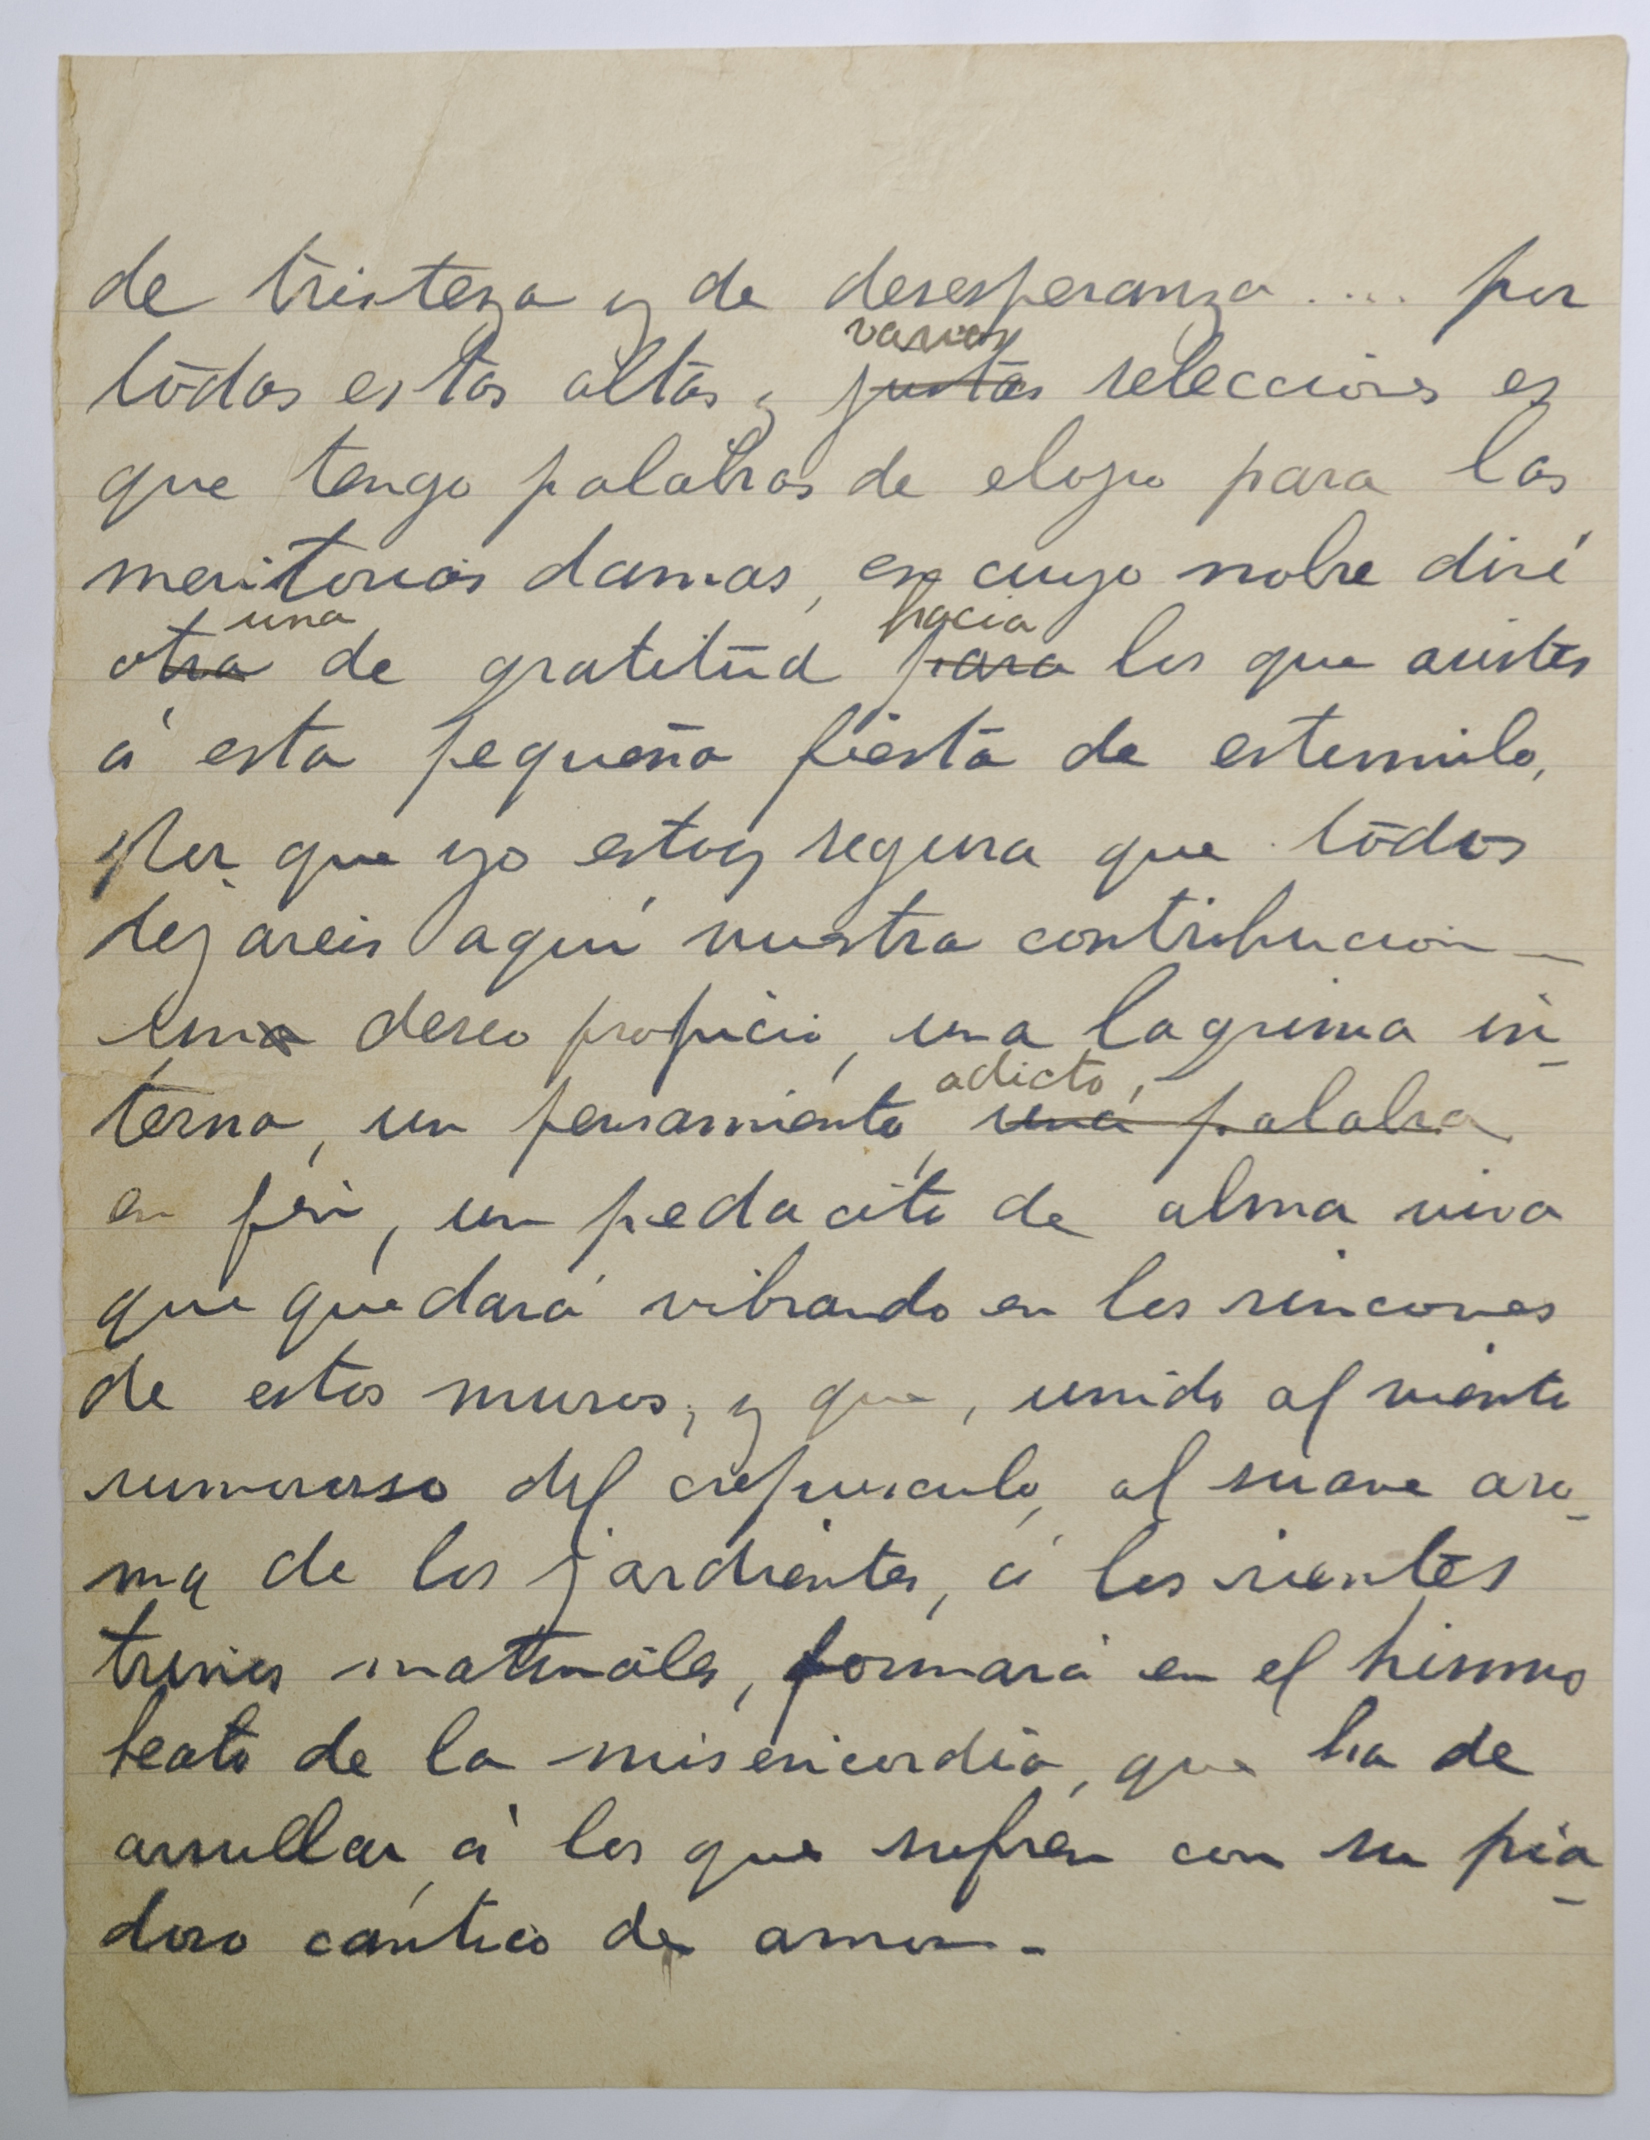 de tristeza y de desesperanza .... por
varias
todas estas altas y justas selecciones es
que tengo palabras de elogio para las
meritorias damas, en cuyo nobre diré
una hacia
otra de gratitud para los que asistes
á esta pequeña fiesta de estemulo,
Por que yo estoy segura que todos
dejareis aquí vuestra contribucion _
una deseo propicio, una lagrima in-
adicto,
terna, un pensamiento, una palabra
en fin, un pedacito de alma viva
que quedará vibrando en los rincones
de estos muros, y que, unido al viento
rumoroso del crepusculo, al suave aro-
ma de los jardientes, á los rientes
trinos matinales, formará en el himno
beato de la misericordia, que ha de
arrullar, á los que sufren con su pia-
doso cantico de amor.-